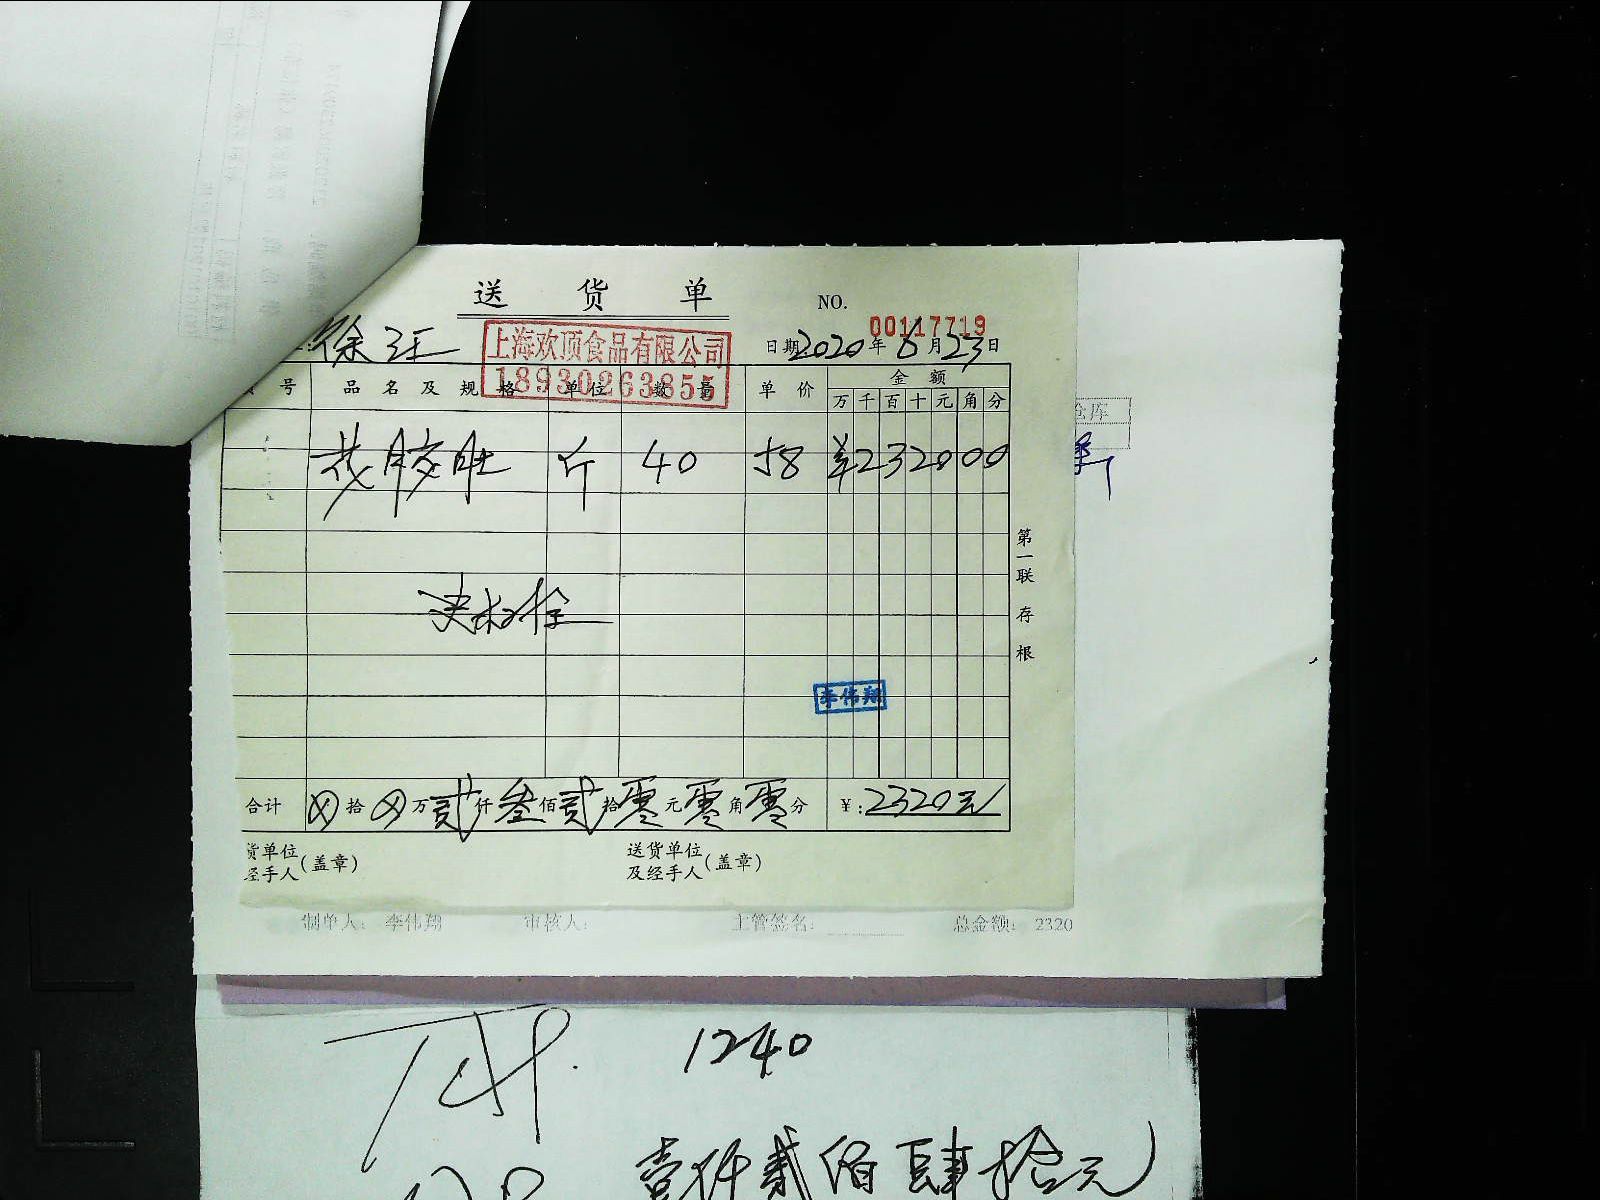 送 货 单
NO.
00117719
徐汇
上海欢顶食品有限公司
18930263855
日期 2020 年 6 月 23 日
号 品名及规格 单位 数量 单价 金额
万 千 百 十 元 角 分
花胶肚 斤 40 58 ¥2320 00
仓库
李伟翔
第一联 存根
合计 ⊗ 拾 ⊗ 万 贰 仟 叁 佰 贰 拾 零 元 零 角 零 分 ¥:2320元
货单位
经手人 (盖章)
送货单位
及经手人 (盖章)
制单人: 李伟翔 审核人: 主管签名: 总金额: 2320
1240
壹仟贰佰肆拾元